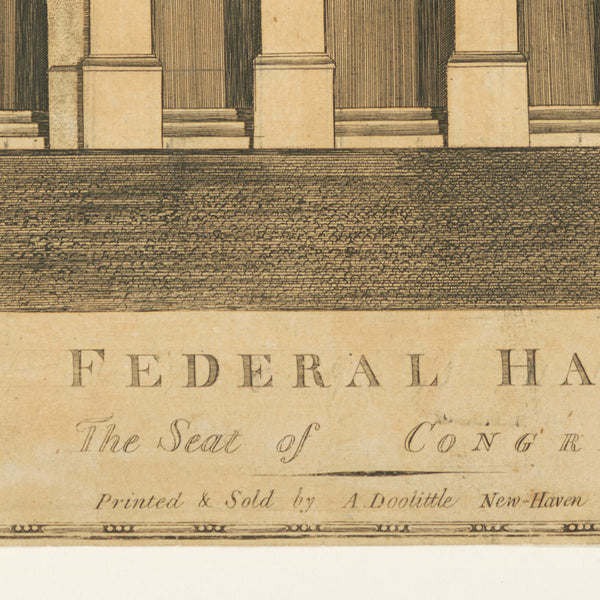 FEDERAL HA
The Seat of CONGR
Printed & Sold by A. Doolittle New-Haven